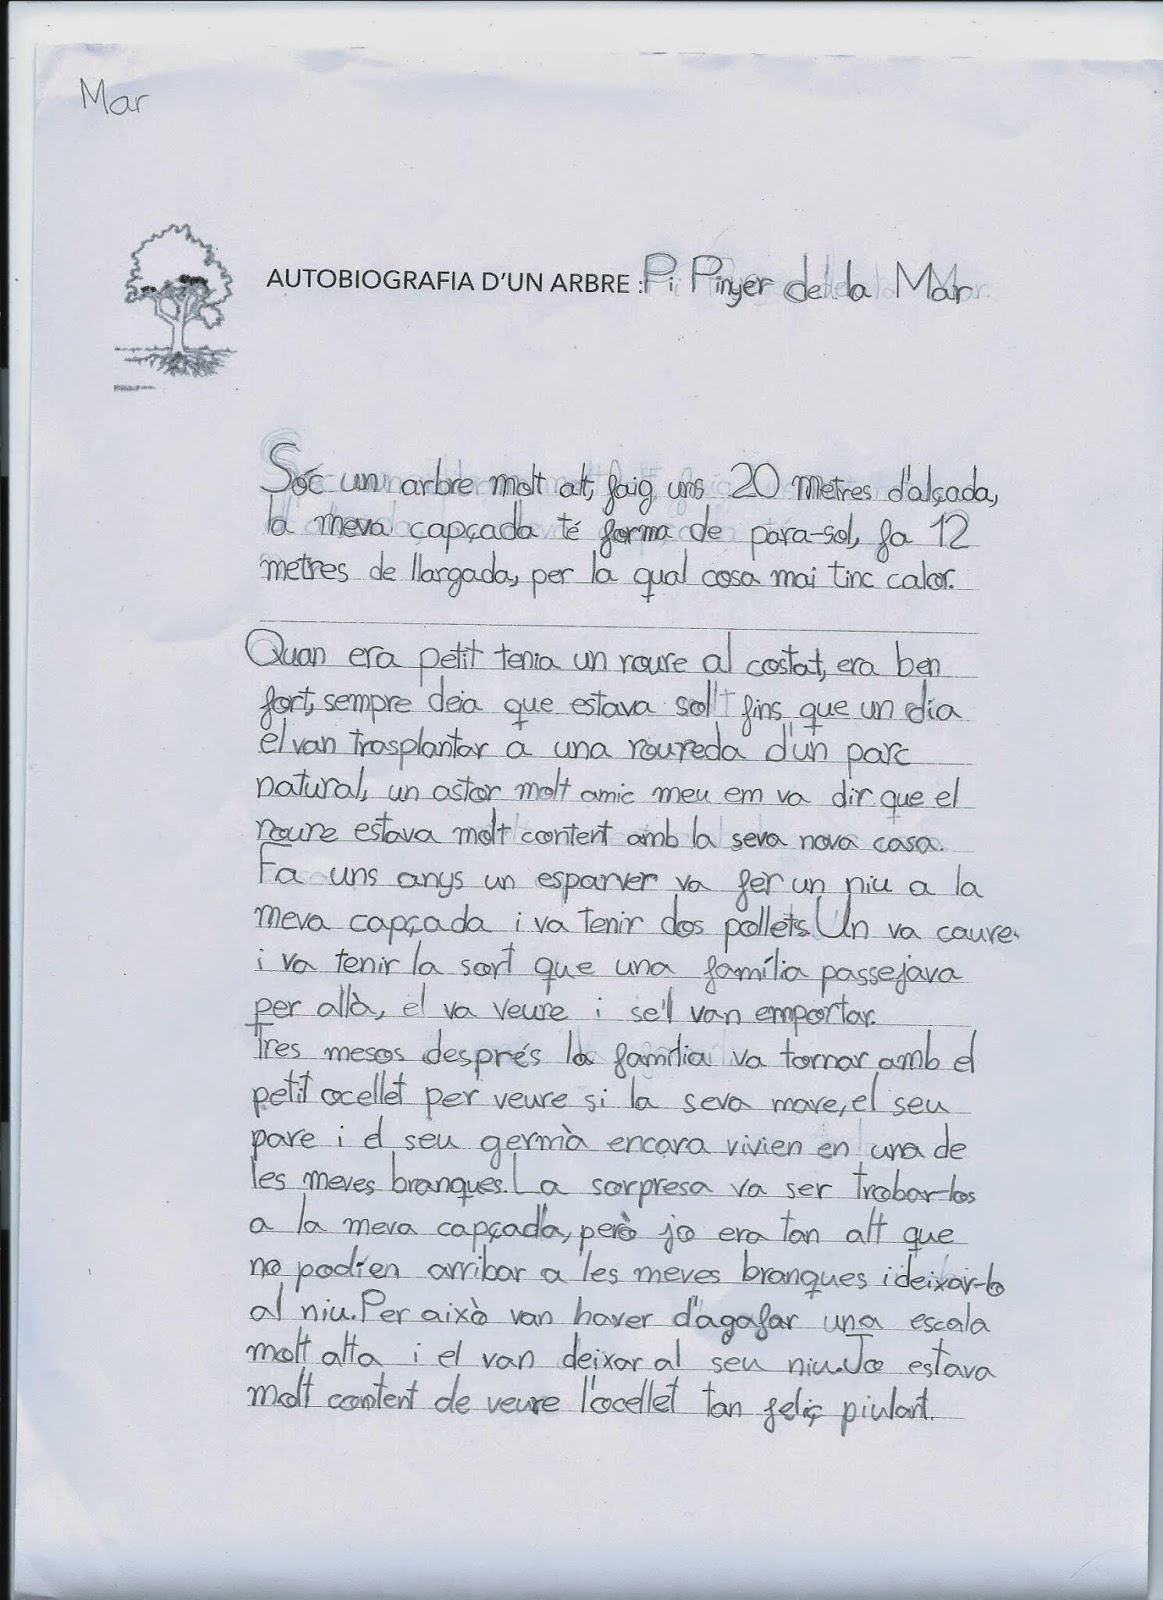 Mar
AUTOBIOGRAFIA D'UN ARBRE : Pi Pinyer de la Mar
Sóc un arbre molt alt, faig uns 20 metres d'alçada,
la meva capçada té forma de para-sol, fa 12
metres de llargada, per la qual cosa mai tinc calor.
Quan era petit tenia un roure al costat, era ben
fort, sempre deia que estava sol fins que un dia
el van trasplantar a una roureda d'un parc
natural, un astor molt amic meu em va dir que el
roure estava molt content amb la seva nova casa.
Fa uns anys un esparver va fer un niu a la
meva capçada i va tenir dos pollets. Un va caure
i va tenir la sort que una família passejava
per allà, el va veure i se'l van emportar.
Tres mesos després la família va tornar amb el
petit ocellet per veure si la seva mare, el seu
pare i el seu germà encara vivien en una de
les meves branques. La sorpresa va ser trobar-los
a la meva capçada, però jo era tan alt que
no podien arribar a les meves branques i deixar-lo
al niu. Per això van haver d'agafar una escala
molt alta i el van deixar al seu niu. Jo estava
molt content de veure l'ocellet tan feliç piulant.